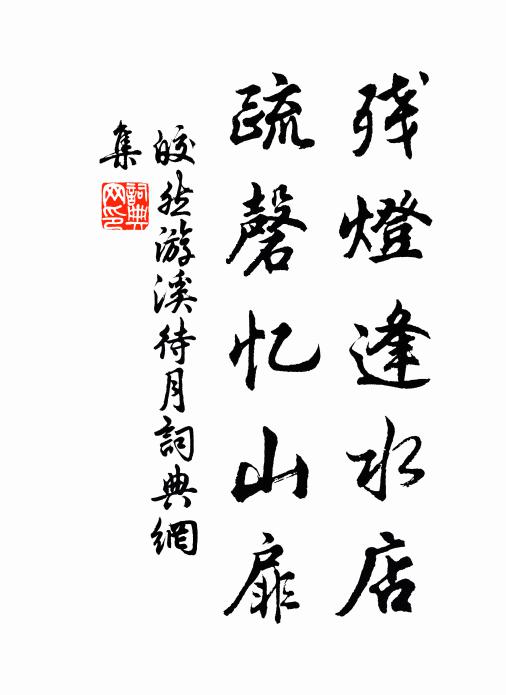 残燈逢水店
疏磬忆山扉
皎然游溪待月詞典網
集
詞典
网印